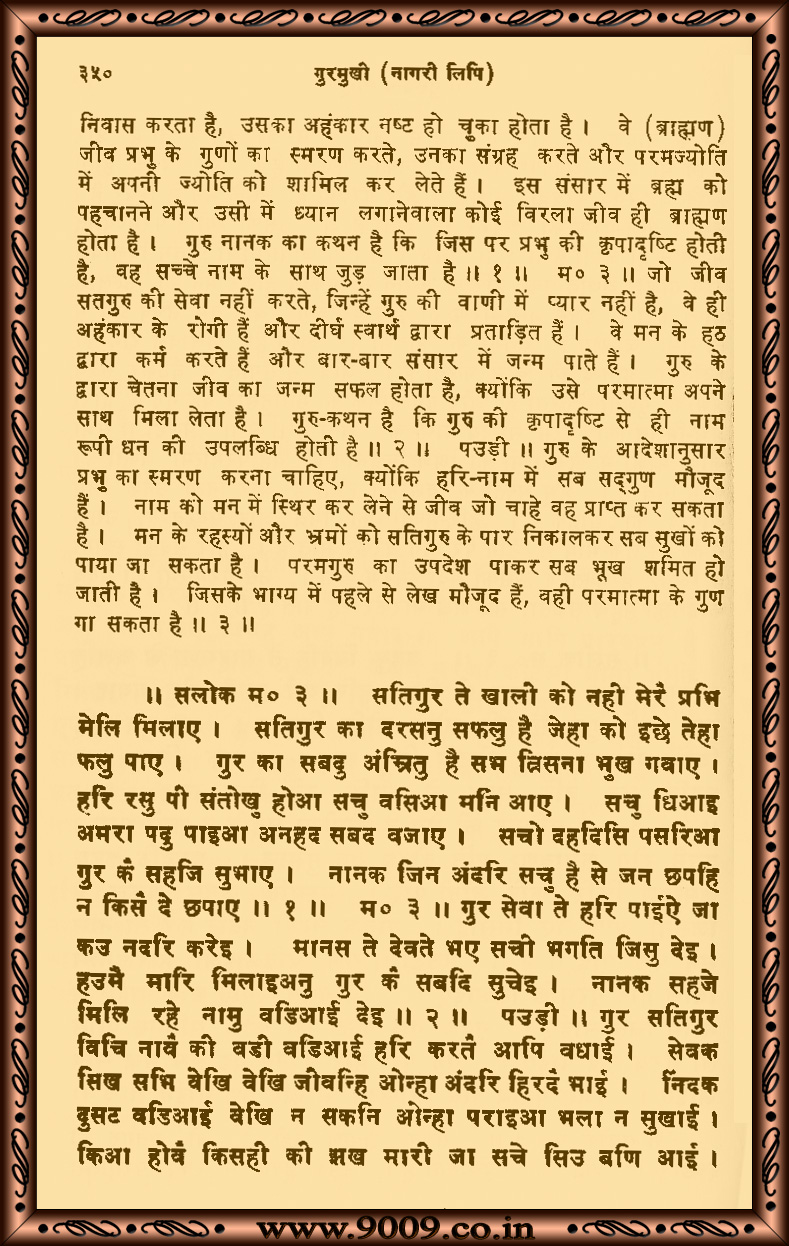 ३५०
गुरमुखी (नागरी लिपि)
निवास करता है, उसका अहंकार नष्ट हो चुका होता है। वे (ब्राह्मण)
जीव प्रभु के गुणों का स्मरण करते, उनका संग्रह करते और परमज्योति
में अपनी ज्योति को शामिल कर लेते हैं। इस संसार में ब्रह्म को
पहचानने और उसी में ध्यान लगानेवाला कोई विरला जीव ही ब्राह्मण
होता है। गुरु नानक का कथन है कि जिस पर प्रभु की कृपादृष्टि होती
है, वह सच्चे नाम के साथ जुड़ जाता है॥ १॥ म० ३॥ जो जीव
सतगुरु की सेवा नहीं करते, जिन्हें गुरु की वाणी में प्यार नहीं है, वे ही
अहंकार के रोगी हैं और दीर्घ स्वार्थ द्वारा प्रताड़ित हैं। वे मन के हठ
द्वारा कर्म करते हैं और बार-बार संसार में जन्म पाते हैं। गुरु के
द्वारा चेतना जीव का जन्म सफल होता है, क्योंकि उसे परमात्मा अपने
साथ मिला लेता है। गुरु-कथन है कि गुरु की कृपादृष्टि से ही नाम
रूपी धन की उपलब्धि होती है॥ २॥ पउड़ी॥ गुरु के आदेशानुसार
प्रभु का स्मरण करना चाहिए, क्योंकि हरि-नाम में सब सद्गुण मौजूद
हैं। नाम को मन में स्थिर कर लेने से जीव जो चाहे वह प्राप्त कर सकता
है। मन के रहस्यों और भ्रमों को सतिगुरु के पार निकालकर सब सुखों को
पाया जा सकता है। परमगुरु का उपदेश पाकर सब भूख शमित हो
जाती है। जिसके भाग्य में पहले से लेख मौजूद हैं, वही परमात्मा के गुण
गा सकता है॥ ३॥
॥ सलोक म० ३॥ सतिगुर ते खाली को नही मेरै प्रभि
मेलि मिलाए। सतिगुर का दरसनु सफलु है जेहा को इछे तेहा
फलु पाए। गुर का सबदु अंम्रितु है सभ त्रिसना भुख गवाए।
हरि रसु पी संतोखु होआ सचु वसिआ मनि आए। सचु धिआइ
अमरा पदु पाइआ अनहद सबद वजाए। सचो दहदिसि पसरिआ
गुर कै सहजि सुभाए। नानक जिन अंदरि सचु है से जन छपहि
न किसै दे छपाए॥ १॥ म० ३॥ गुर सेवा ते हरि पाईऐ जा
कउ नदरि करेइ। मानस ते देवते भए सची भगति जिसु देइ।
हउमै मारि मिलाइअनु गुर कै सबदि सुचेइ। नानक सहजे
मिलि रहे नामु वडिआई देइ॥ २॥ पउड़ी॥ गुर सतिगुर
विचि नावै की वडी वडिआई हरि करतै आपि वधाई। सेवक
सिख सभि वेखि वेखि जीवन्हि ओन्हा अंदरि हिरदै भाई। निंदक
दुसट वडिआई वेखि न सकनि ओन्हा पराइआ भला न सुखाई।
किआ होवै किसही की झख मारी जा सचे सिउ बणि आई।
www.9009.co.in